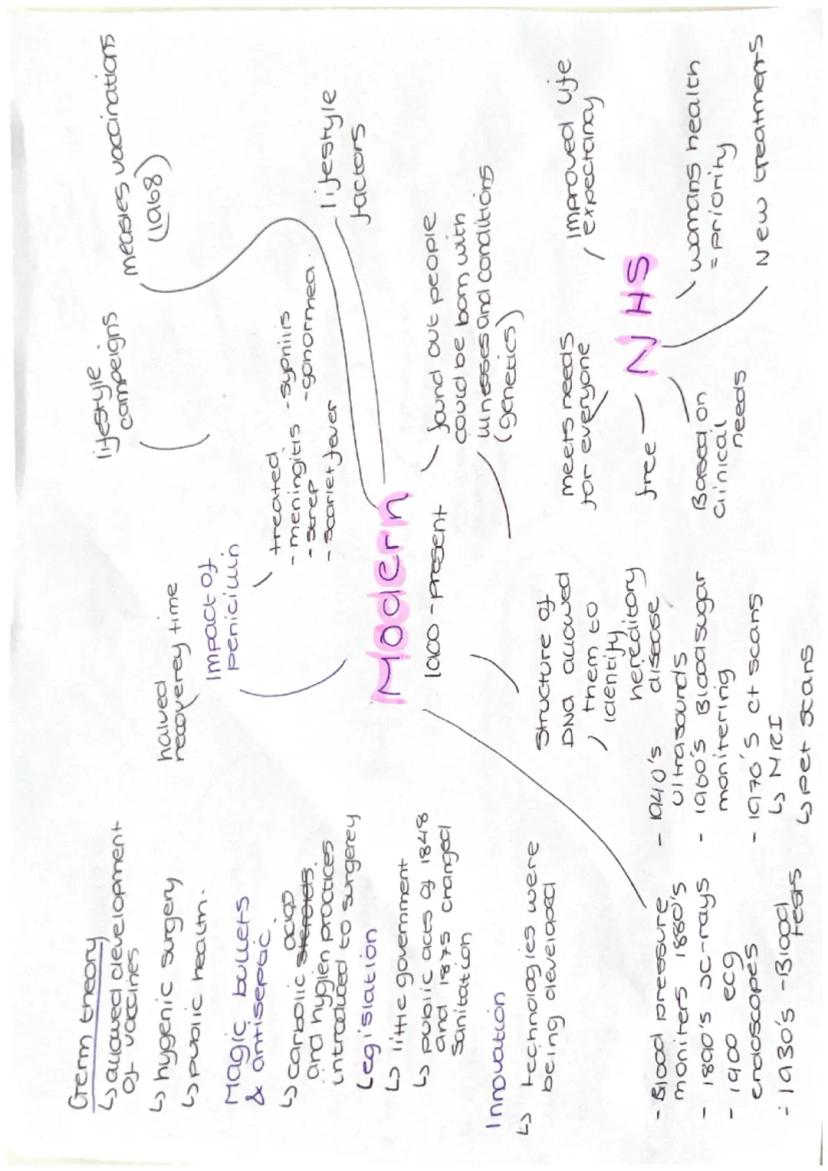 Germ theory
↳ allowed development
of vaccines
↳ hygenic surgery
↳ public health.
Magic bullets
& antiseptic
↳ carbolic steroids acids
and hygien practices
introduced to surgerey
Legislation
↳ little government
↳ public acts of 1848
and 1875 changed
sanitation
Innovation
↳ technologies were
being developed
- Blood pressure
moniters 1880's
- 1890's x-rays
- 1900 ecg
endoscopes
- 1930's - Blood
tests
- 1940's
ultrasounds
- 1960's Blood sugar
monitering
- 1970's ct scans
↳ MRI
↳ pet scans
halved
recoverey time
Impact of
penicillin
treated
- meningitis - syphilis
- strep - gonorrhea.
- scarlet fever
Modern
1900 - present
structure of
DNA allowed
them to
identify
hereditory
disease
lifestyle
campeigns
measles vaccinations
(1968)
lifestyle
factors
found out people
could be born with
illnesses and conditions
(genetics)
meets needs
for everyone
free
Based on
clinical
needs
NHS
Improved life
expectancy
womans health
= priority
New treatments